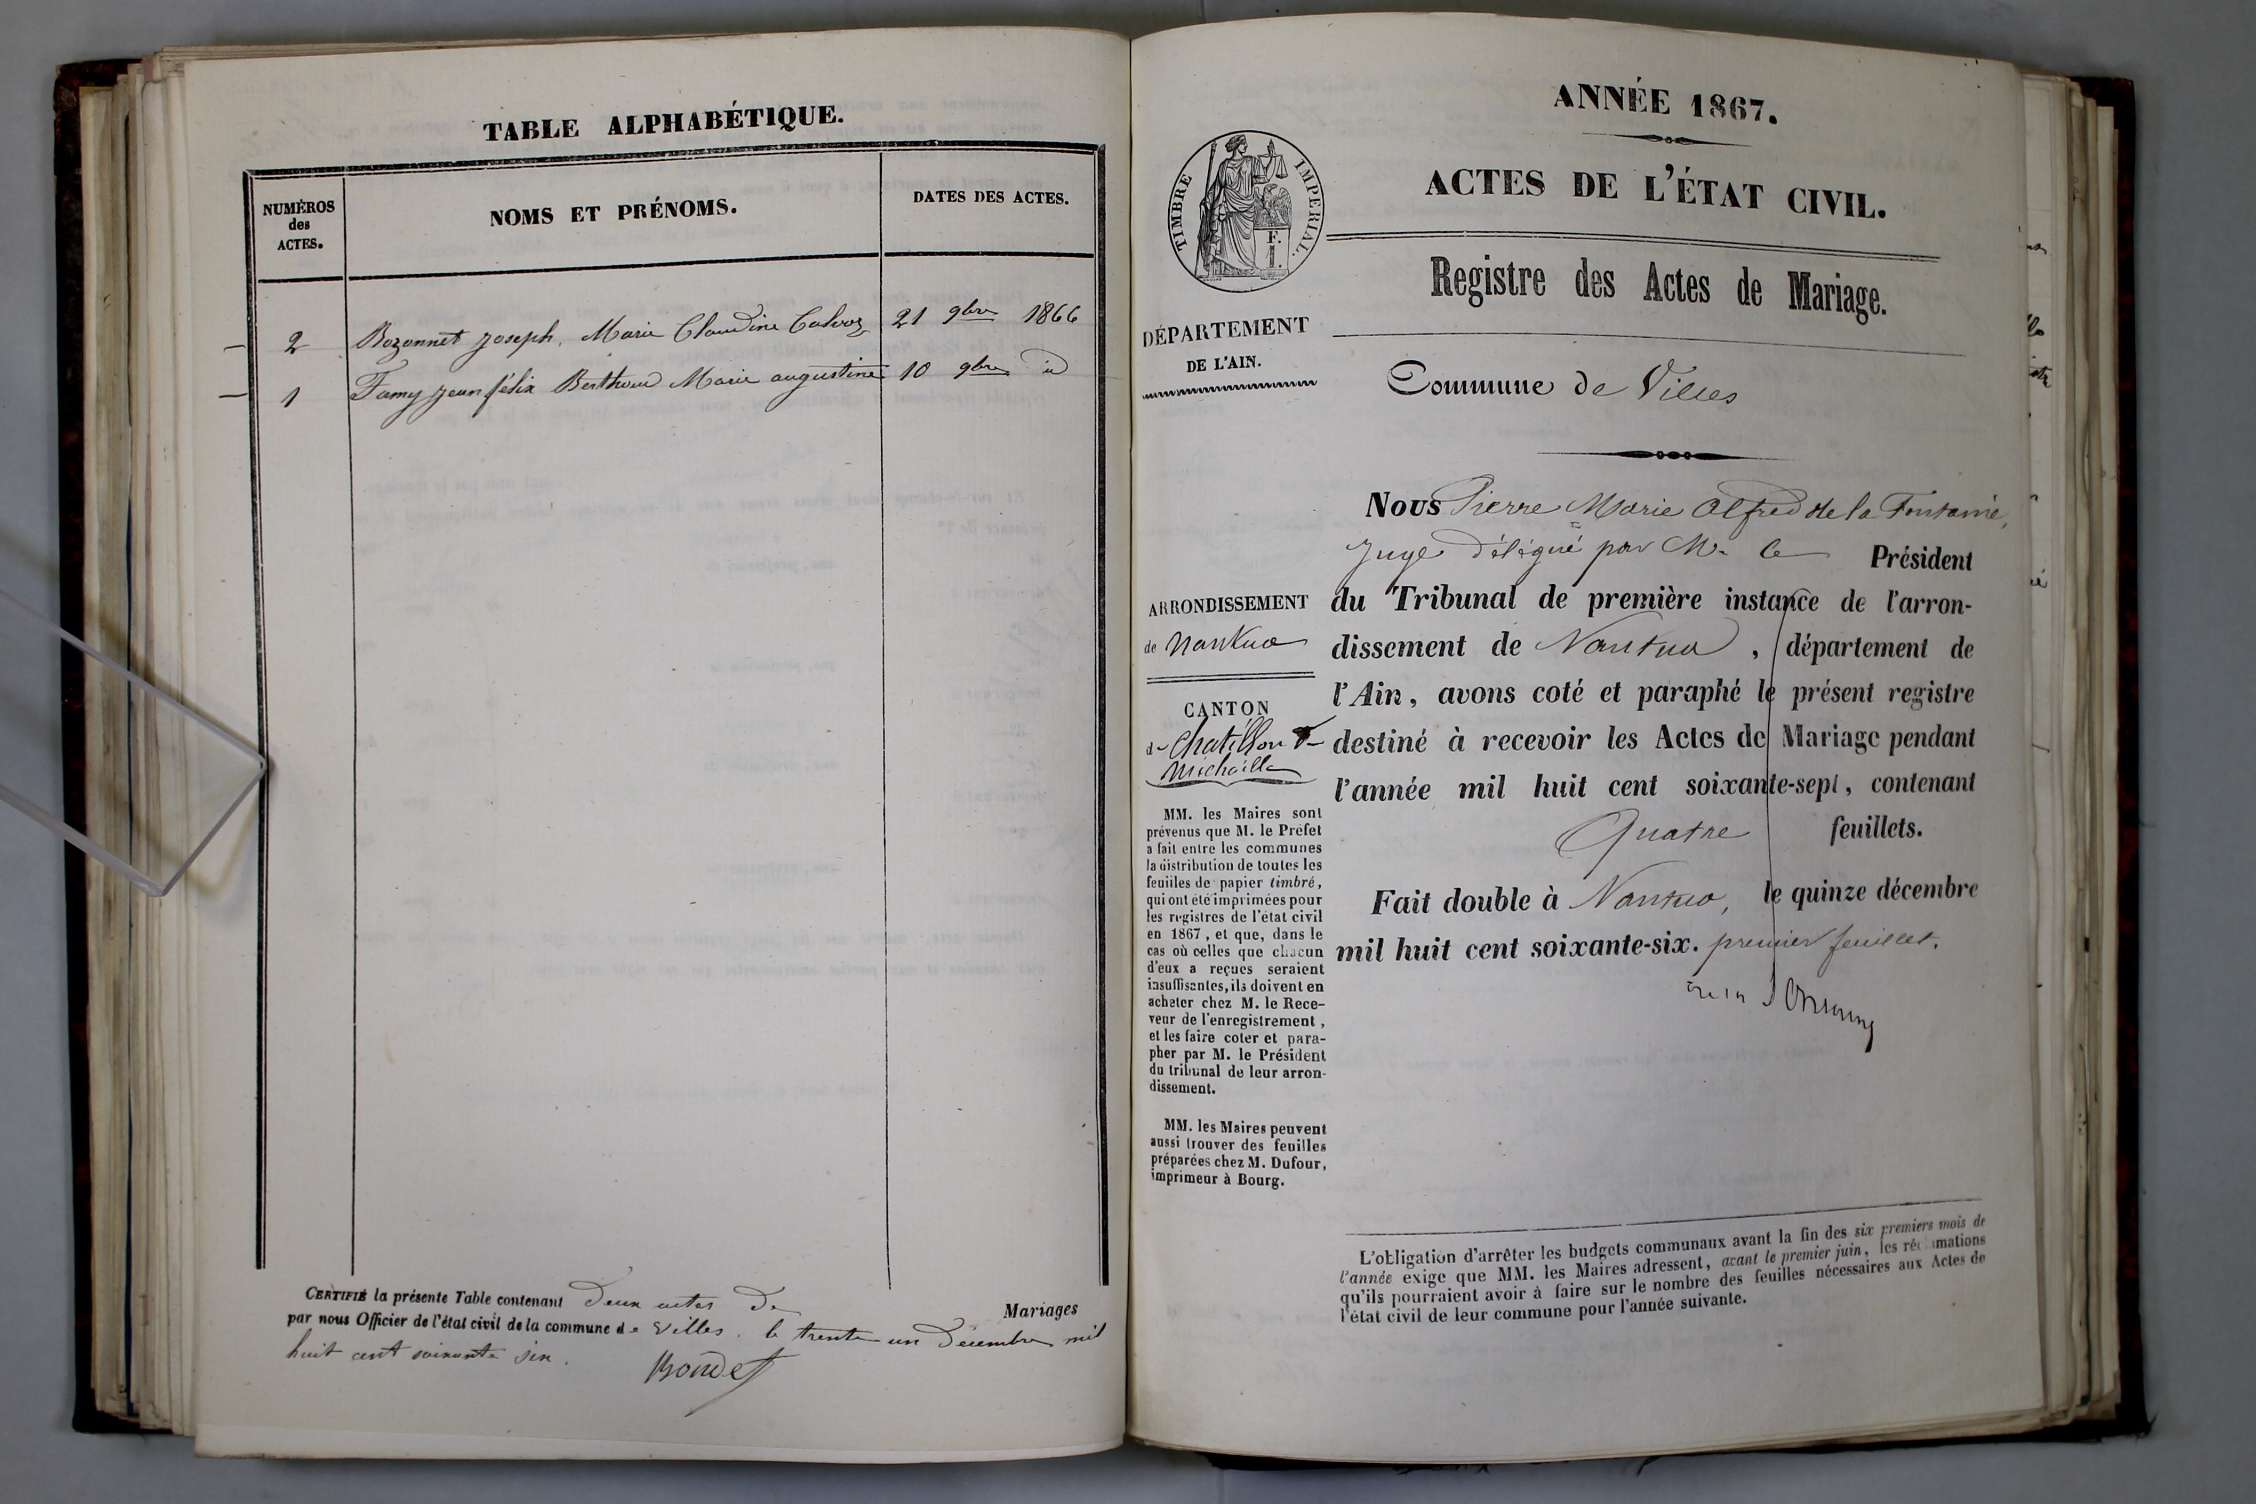 TABLE ALPHABÉTIQUE.
NUMÉROS
des
ACTES.
NOMS ET PRÉNOMS.
DATES DES ACTES.
2 Bozonnet Joseph, Marie Claudine 21 9bre 1866
1 Famy jean félix Berthoud Marie augustine 10 9bre id
CERTIFIÉ la présente Table contenant Deux actes De Mariages
par nous Officier de l'état civil de la commune de Villes. le trente un Décembre mil
huit cent soixante six.
Bondet
ANNÉE 1867.
ACTES DE L'ÉTAT CIVIL.
TIMBRE IMPERIAL.
F.
1.
Registre des Actes de Mariage.
DÉPARTEMENT
DE L'AIN.
Commune de Villes
ARRONDISSEMENT
de Nantua
CANTON
de Chatillon de
Michaille
MM. les Maires sont
prévenus que M. le Préfet
a fait entre les communes
la distribution de toutes les
feuilles de papier timbré,
qui ont été imprimées pour
les registres de l'état civil
en 1867, et que, dans le
cas où celles que chacun
d'eux a reçues seraient
insuffisantes, ils doivent en
acheter chez M. le Rece-
veur de l'enregistrement,
et les faire coter et para-
pher par M. le Président
du tribunal de leur arron-
dissement.
MM. les Maires peuvent
aussi trouver des feuilles
préparées chez M. Dufour,
imprimeur à Bourg.
Nous Pierre Marie Alfred de la Fontaine,
Juge délégué par M. le Président
du Tribunal de première instance de l'arron-
dissement de Nantua, département de
l'Ain, avons coté et paraphé le présent registre
destiné à recevoir les Actes de Mariage pendant
l'année mil huit cent soixante-sept, contenant
Quatre feuillets.
Fait double à Nantua, le quinze décembre
mil huit cent soixante-six. premier feuillet.
L'obligation d'arrêter les budgets communaux avant la fin des six premiers mois de
l'année exige que MM. les Maires adressent, avant le premier juin, les réclamations
qu'ils pourraient avoir à faire sur le nombre des feuilles nécessaires aux Actes de
l'état civil de leur commune pour l'année suivante.